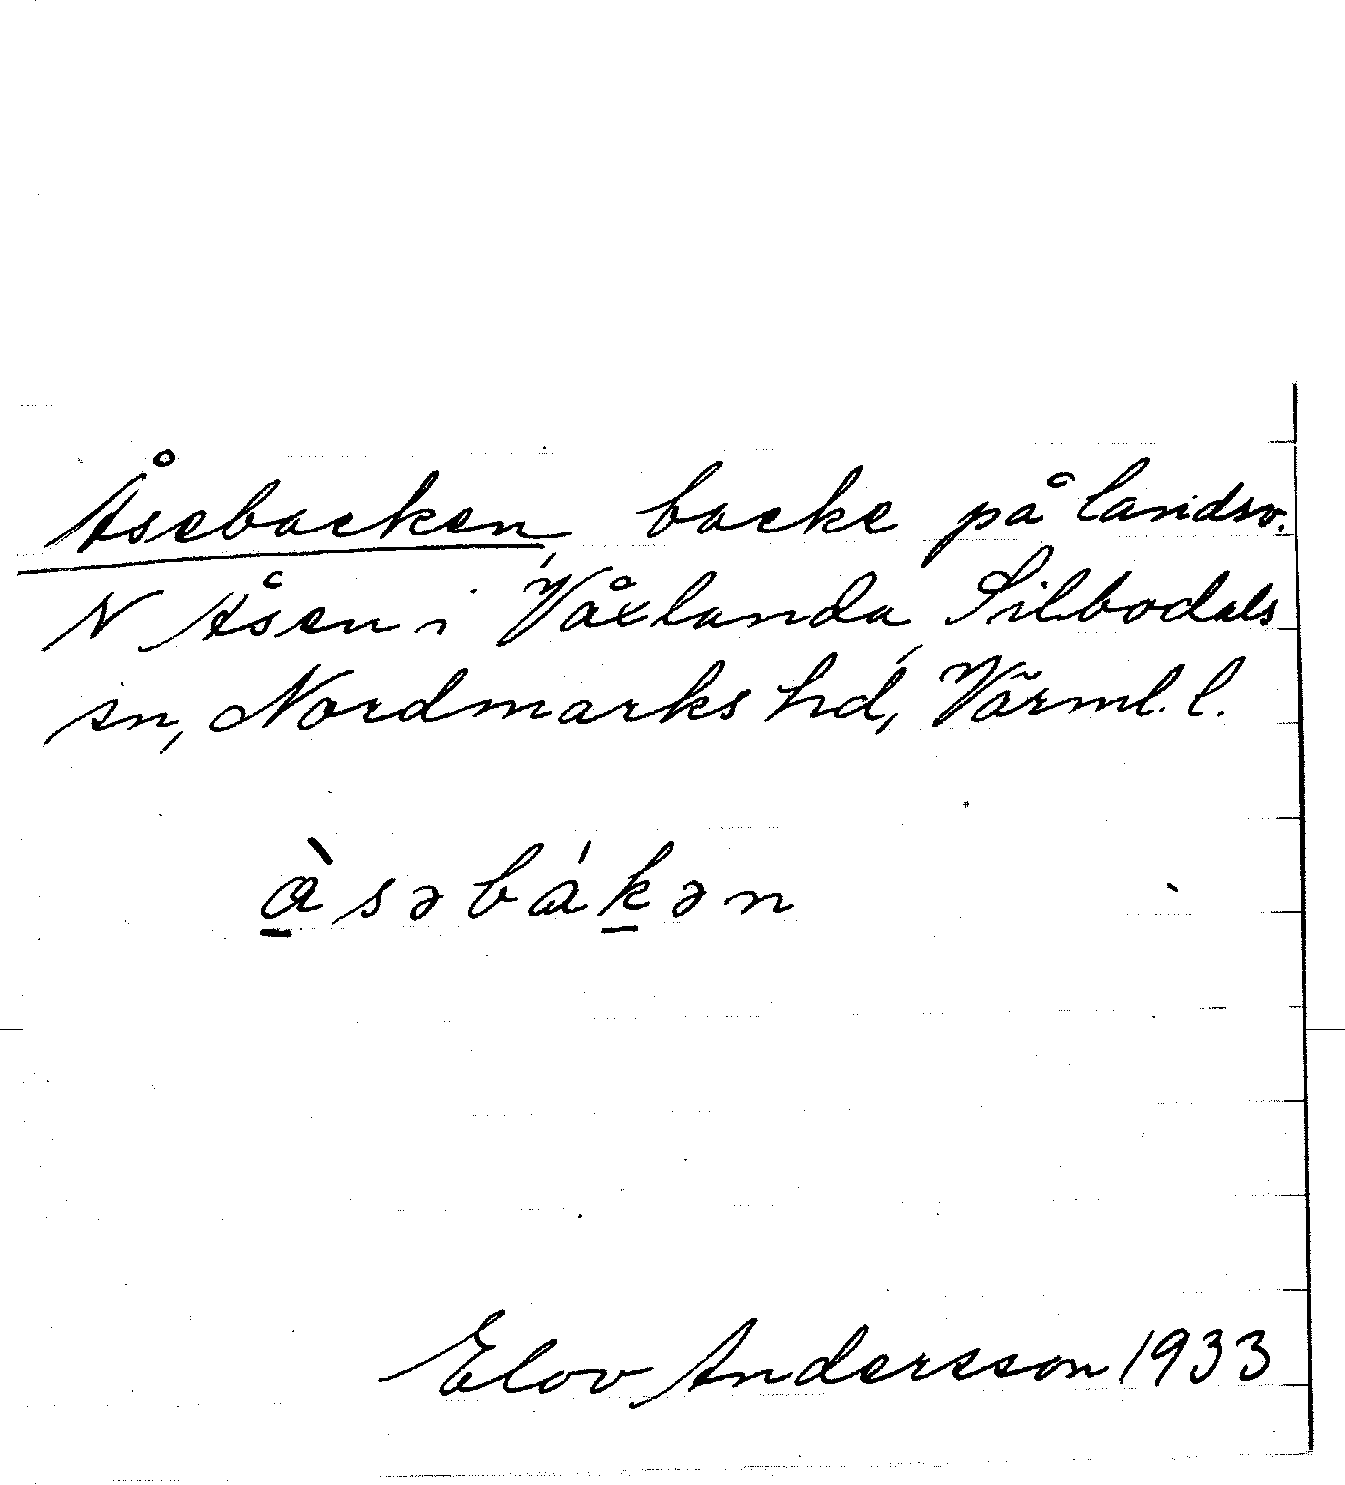 Åsebacken, backe på landsv.
N Åsen i Våxlanda, Silbodals
sn, Nordmarks hd, Värml. l.
à̱səbák̠ən
Elov Andersson 1933